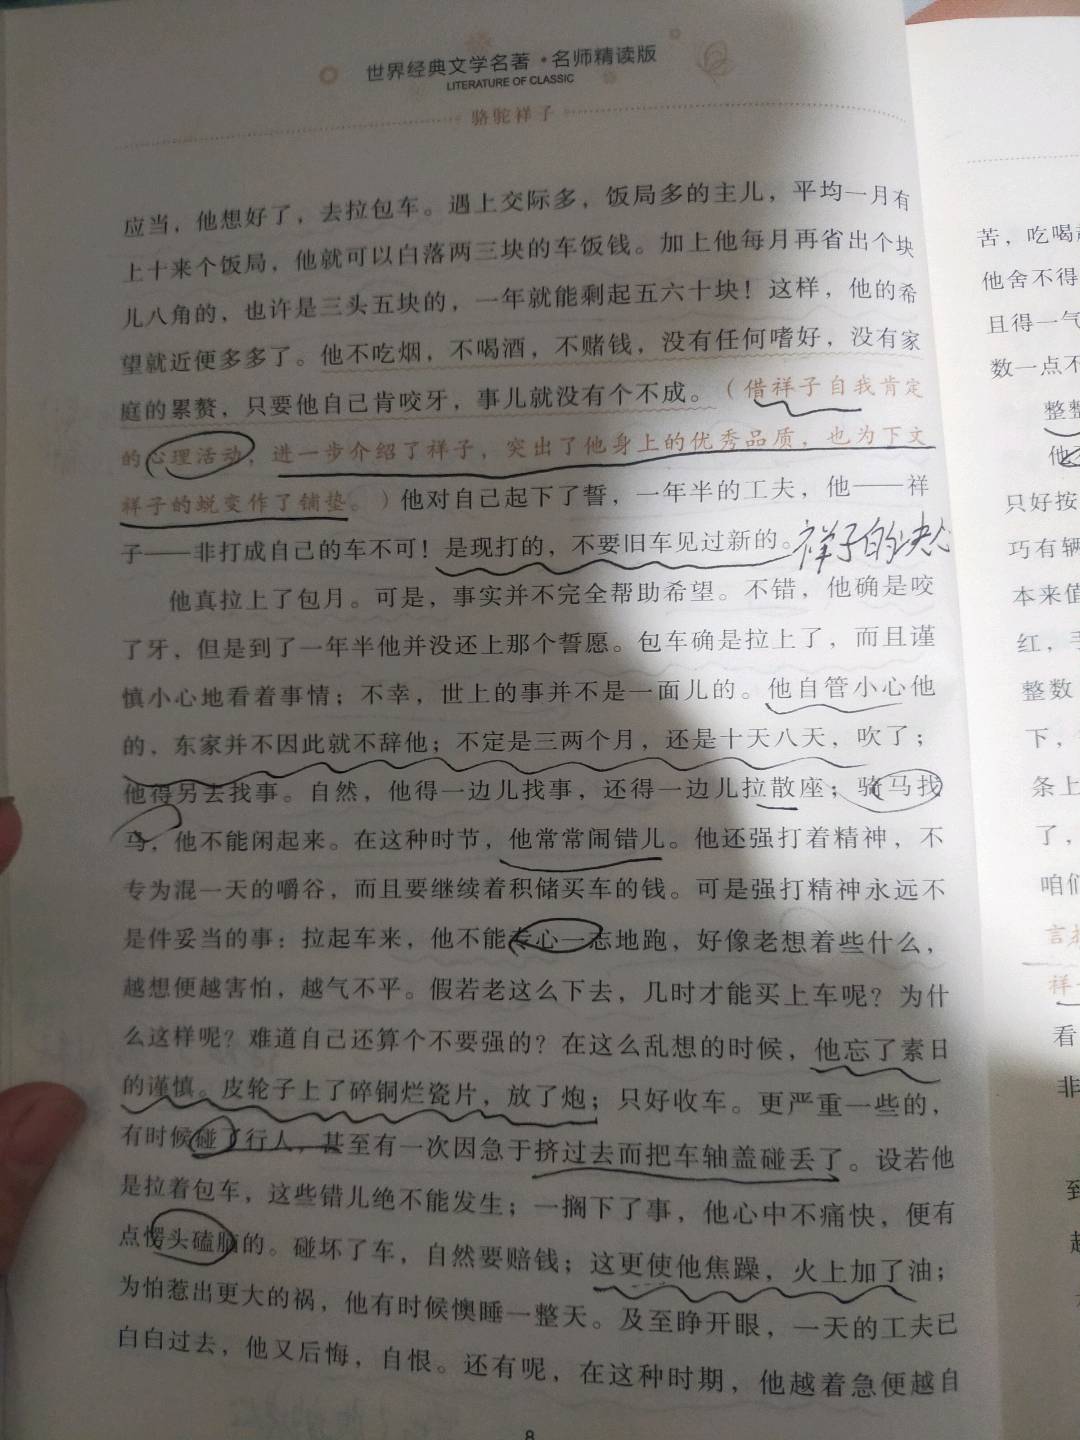 世界经典文学名著·名师精读版
LITERATURE OF CLASSIC
骆驼祥子
应当，他想好了，去拉包车。遇上交际多，饭局多的主儿，平均一月有
上十来个饭局，他就可以白落两三块的车饭钱。加上他每月再省出个块
儿八角的，也许是三头五块的，一年就能剩起五六十块！这样，他的希
望就近便多多了。他不吃烟，不喝酒，不赌钱，没有任何嗜好，没有家
庭的累赘，只要他自己肯咬牙，事儿就没有个不成。（借祥子自我肯定
的心理活动，进一步介绍了祥子，突出了他身上的优秀品质，也为下文
祥子的蜕变作了铺垫。）他对自己起下了誓，一年半的工夫，他——祥
子——非打成自己的车不可！是现打的，不要旧车见过新的。祥子的决心
他真拉上了包月。可是，事实并不完全帮助希望。不错，他确是咬
了牙，但是到了一年半他并没还上那个誓愿。包车确是拉上了，而且谨
慎小心地看着事情；不幸，世上的事并不是一面儿的。他自管小心他
的，东家并不因此就不辞他；不定是三两个月，还是十天八天，吹了；
他得另去找事。自然，他得一边儿找事，还得一边儿拉散座；骑马找
马，他不能闲起来。在这种时节，他常常闹错儿。他还强打着精神，不
专为混一天的嚼谷，而且要继续着积储买车的钱。可是强打精神永远不
是件妥当的事：拉起车来，他不能专心一志地跑，好像老想着些什么，
越想便越害怕，越气不平。假若老这么下去，几时才能买上车呢？为什
么这样呢？难道自己还算个不要强的？在这么乱想的时候，他忘了素日
的谨慎。皮轮子上了碎铜烂瓷片，放了炮；只好收车。更严重一些的，
有时候碰了行人，甚至有一次因急于挤过去而把车轴盖碰丢了。设若他
是拉着包车，这些错儿绝不能发生；一搁下了事，他心中不痛快，便有
点愣头磕脑的。碰坏了车，自然要赔钱；这更使他焦躁，火上加了油；
为怕惹出更大的祸，他有时候懊睡一整天。及至睁开眼，一天的工夫已
白白过去，他又后悔，自恨。还有呢，在这种时期，他越着急便越自
8
苦，吃喝
他舍不得
且得一气
数一点不
整整
他
只好按
巧有辆
本来值
红，手
整数
下，
条上
了，
咱们
言
祥
看
非
到